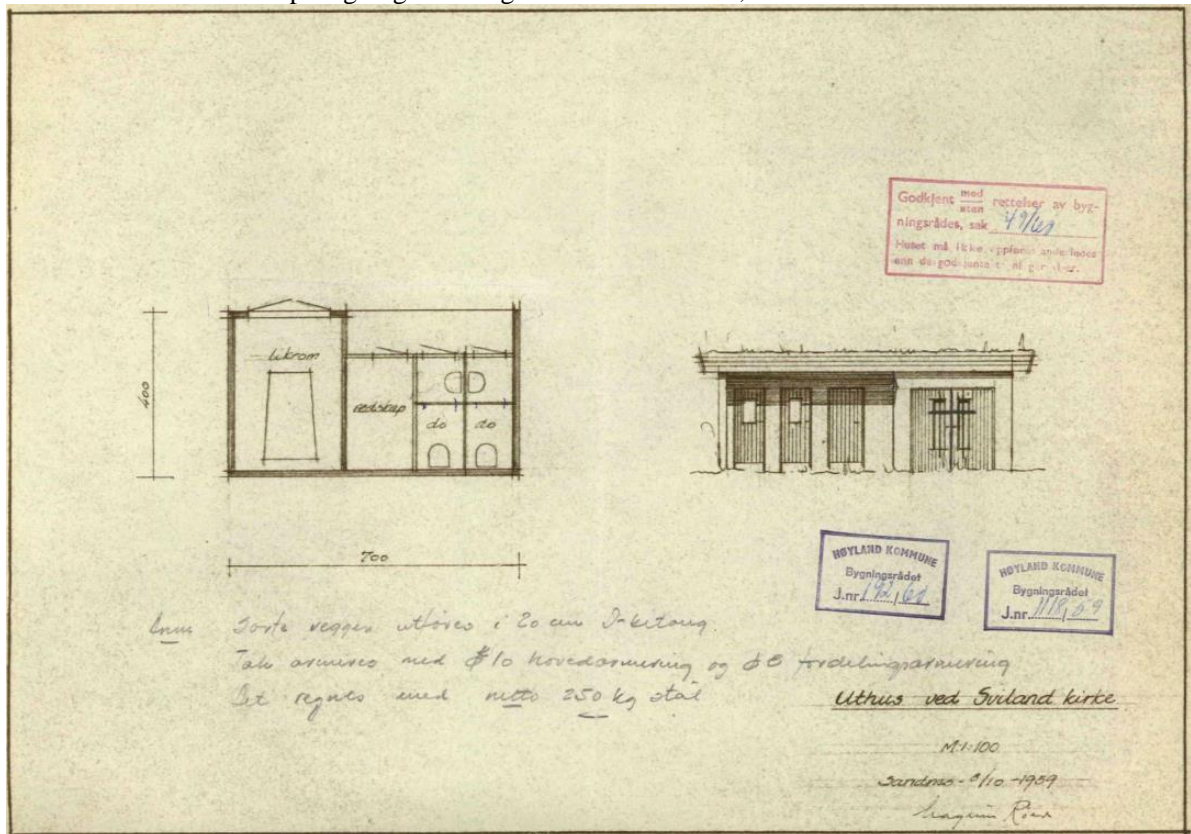 Godkjent med/uten rettelser av byg-
ningsrådes, sak 49/60
Huset må ikke oppføres anderledes
enn de godkjente
likrom
400
redskap
do do
700
HØYLAND KOMMUNE
Bygningsrådet
J.nr. 192/60
HØYLAND KOMMUNE
Bygningsrådet
J.nr. 59
vegger utføres i 20 cm
Tak armeres med ø10 hovedarmering og ø8 fordelingsarmering
Det regnes med netto 250 kg stål
Uthus ved Sviland kirke
M:1:100
Sandnes - /10-1959